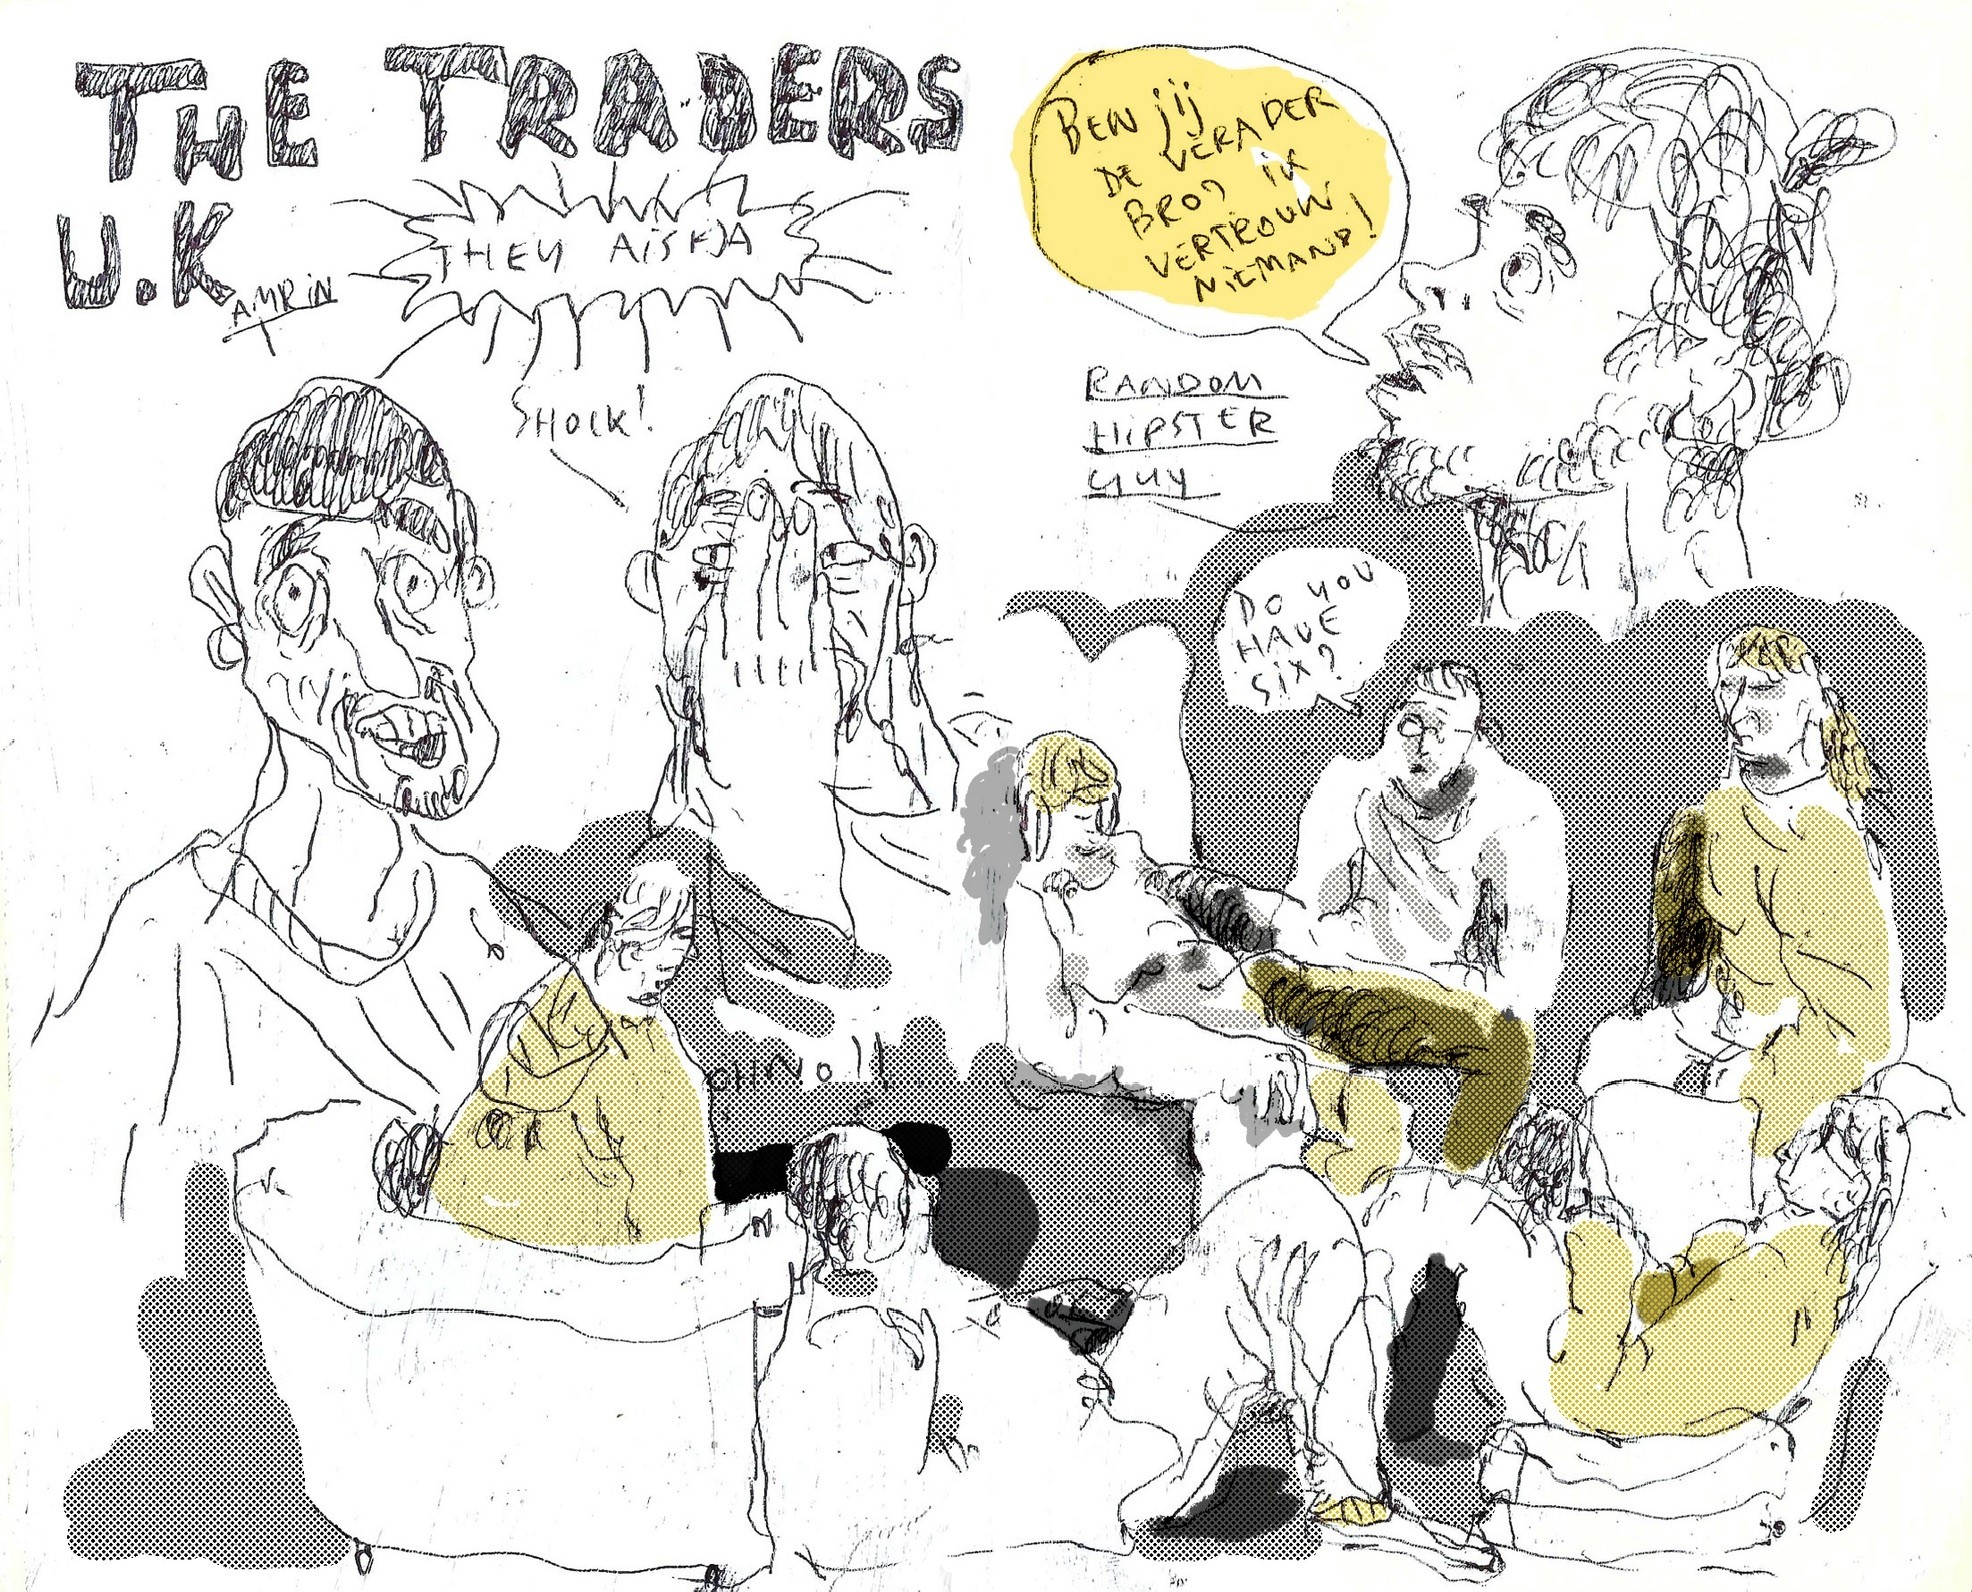 THE TRADERS
U.K
AMRIN
THEY AiSHA
SHOCK!
BEN jij
DE VERADER
BRO? iK
VERTROUW
NiEMAND!
RANDOM
HiPSTER
GUY
DO YOU
HAVE
SiX?